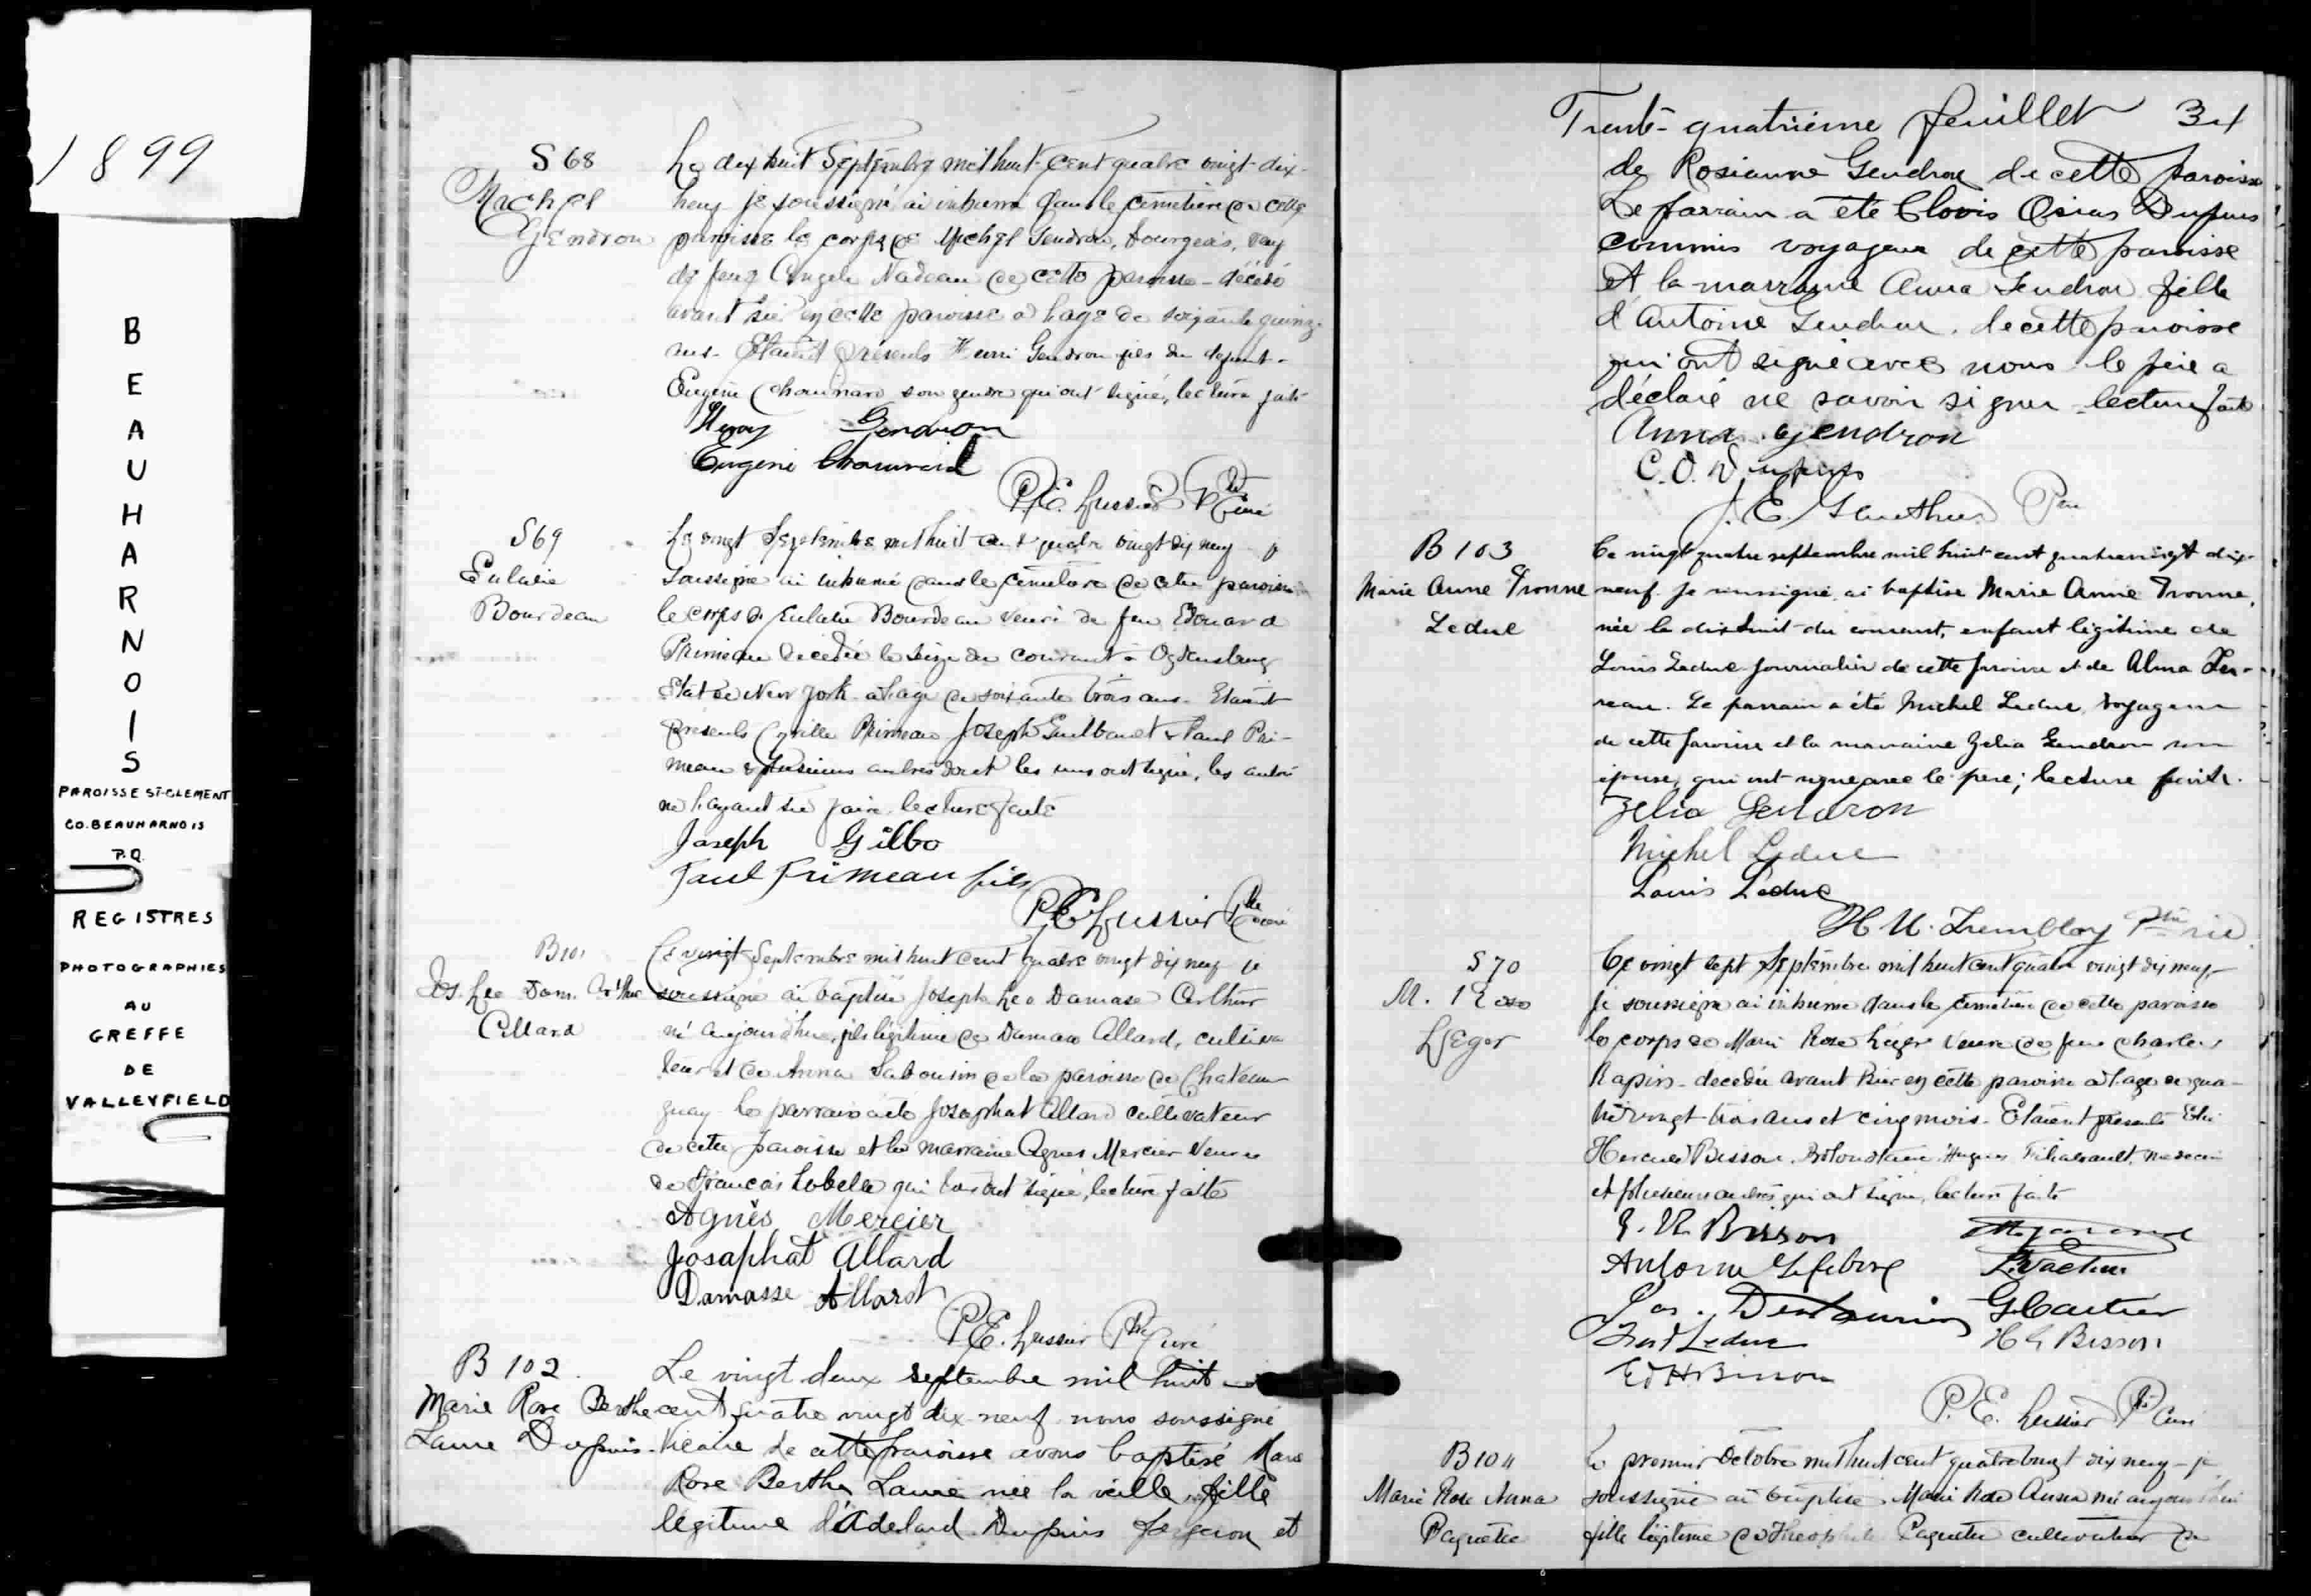 1899
BEAUHARNOIS
PAROISSE ST-CLEMENT
CO. BEAUHARNOIS
P.Q.
REGISTRES
PHOTOGRAPHIES
AU
GREFFE
DE
VALLEYFIELD
S 68
Michel
Gendron
Le dix huit Septembre mil huit cent quatre vingt-dix-
neuf je soussigné ai inhumé dans le cimetière de cette
paroisse le corps de Michel Gendron, bourgeois,
de feue Angele Nadeau de cette paroisse - décédé
avant hier en cette paroisse a l'age de soixante quinze
ans. Etaient présents Henri Gendron fils du defunt -
Eugène Chouinard son gendre qui ont signé, lecture faite
Henry Gendron
Eugène Chouinard
P.E. Lussier Ptre Curé
S 69
Eulalie
Bourdeau
Le vingt Septembre mil huit cent quatre vingt dix neuf je
soussigné ai inhumé dans le cimetière de cette paroisse
le corps de Eulalie Bourdeau veuve de feu Edouard
Primeau décédée le seize du courant à Ogdensburg
Etat de New York a l'age de soixante trois ans. Etaient
présents Cyrille Primeau Joseph Guilbault & Paul Pri-
meau & plusieurs autres dont les uns ont signé, les autres
ne l'ayant su faire. lecture faite
Joseph Gilbo
Paul Primeau fils
P.E. Lussier Ptre Curé
B 101
Jos. Leo Dam. Arthur
Allard
Ce vingt Septembre mil huit cent quatre vingt dix neuf je
soussigné ai baptisé Joseph Leo Damase Arthur
né aujourd'hui, fils légitime de Damase Allard, cultiva
teur et de Anna Sabourin de la paroisse de Chateau
guay - le parrain a été Josaphat Allard cultivateur
de cette paroisse et la marraine Agnes Mercier veuve
de François Lobelle qui ont signé, lecture faite
Agnès Mercier
Josaphat Allard
Damasse Allard
P.E. Lussier Ptre Curé
B 102.
Marie Rose Berthe
Laure Dupuis.
Le vingt deux septembre mil huit
cent quatre vingt dix-neuf nous soussigné
Vicaire de cette paroisse avons baptisé Marie
Rose Bertha Laure née la veille, fille
légitime d'Adelard Dupuis forgeron et
Trente-quatrième feuillet 34
de Rosianne Gendron de cette paroisse
Le parrain a été Clovis Osias Dupuis
commis voyageur de cette paroisse
et la marraine Anna Gendron fille
d'Antoine Gendron. de cette paroisse
qui ont signé avec nous le père a
déclaré ne savoir signer - lecture faite
Anna Gendron
C.O. Dupuis
J.E. Gauthier Ptre
B 103
Marie Anne Yvonne
Leduc
Ce vingt quatre septembre mil huit cent quatrevingt dix-
neuf. Je soussigné ai baptisé Marie Anne Yvonne,
née le dix huit du courant, enfant légitime de
Louis Leduc journalier de cette paroisse et de Alma
reau. Le parrain a été Michel Leduc, voyageur
de cette paroisse et la marraine Zelia Gendron son
épouse, qui ont signé avec le père; lecture faite.
Zelia Gendron
Michel Leduc
Louis Leduc
H U. Tremblay Ptre vic.
S 70
M. Rose
Léger
Ce vingt sept Septembre mil huit cent quatre vingt dix neuf
je soussigné ai inhumé dans le cimetière de cette paroisse
le corps de Marie Rose Léger veuve de feu Charles
Rapin - decedée avant hier en cette paroisse a l'age de qua-
tre vingt trois ans et cinq mois. Etaient présents Elie
Hercule Bisson, Protonotaire, Hugues Filiatrault, médecin
et plusieurs autres qui ont signé, lecture faite
E. H. Bisson
Antoine Lefebvre
Jos. Deslauriers
G Cartier
Leduc
H Bisson
Ed H Bisson
P.E. Lussier Ptre Curé
B 104
Marie Rose Anna
Paquette
Le premier Octobre mil huit cent quatre vingt dix neuf - je
soussigné ai baptisé Marie Rose Anna née aujourd'hui
fille légitime de Theophile Paquette cultivateur de